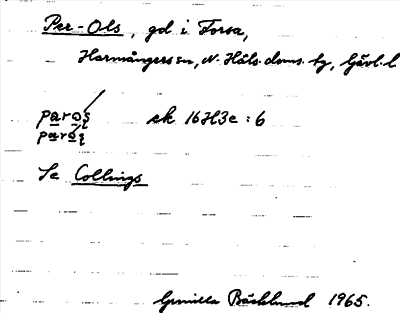 Per-Ols, gd i Forsa,
Harmångers sn, N. Häls. doms. hg, Gävl. l
paroş
paroş
ek 16H3e:6
Se Collings
Gunilla Bäcklund 1965.